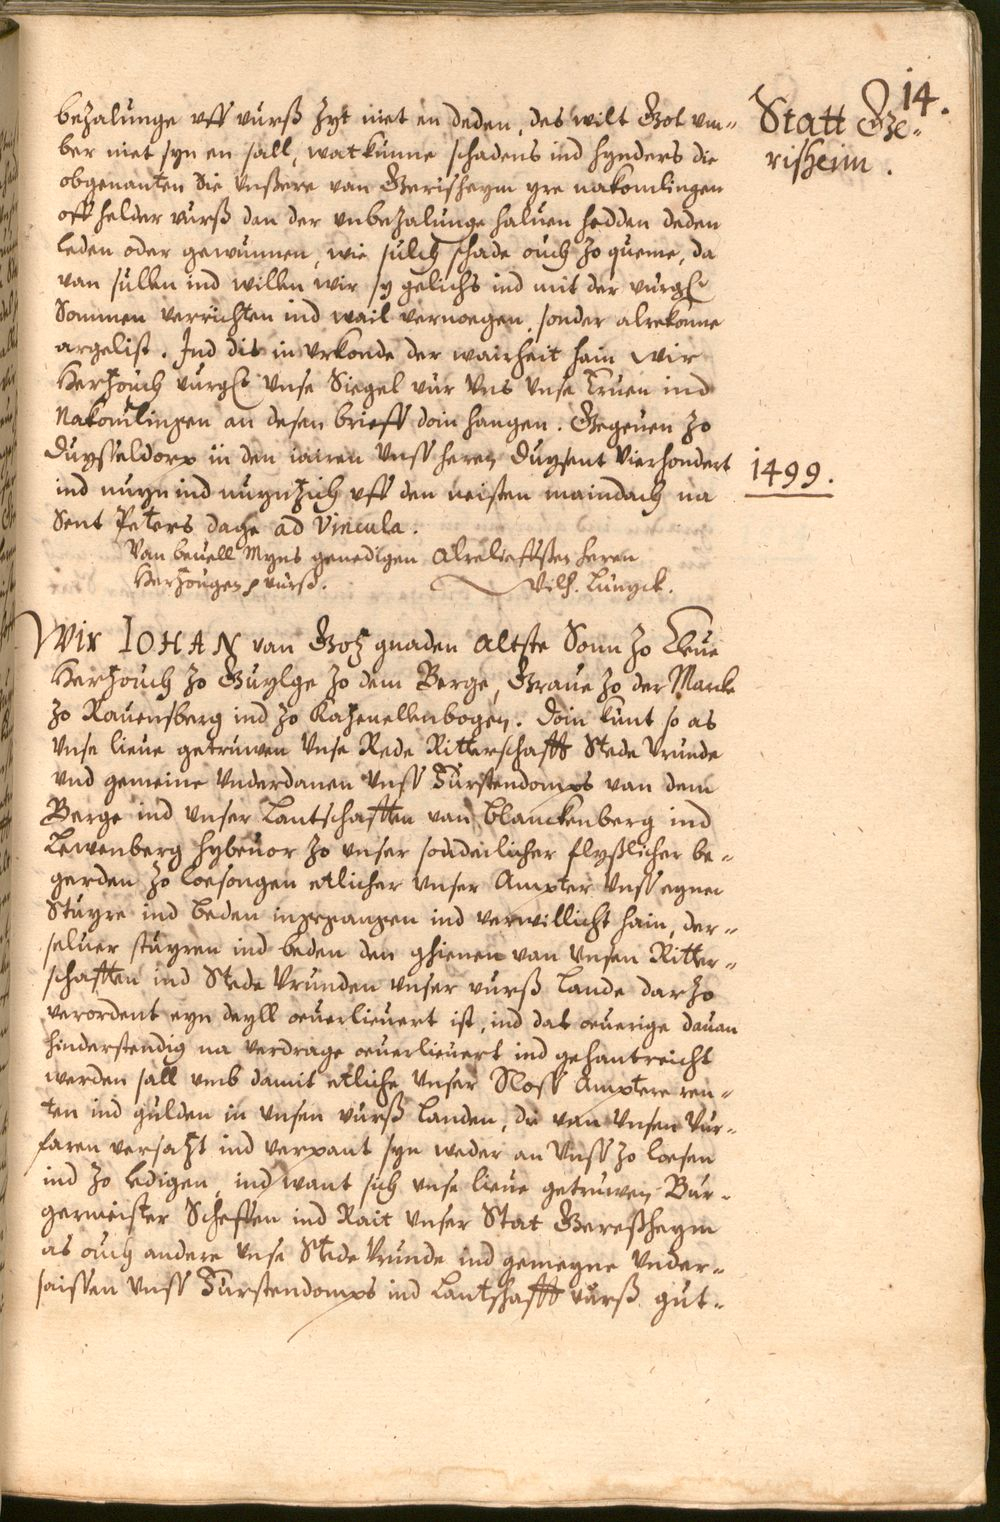 14.
Statt Ge-
risheim.
bezalunge uff vurß zyt niet en deden, des wilt Got um-
ber niet syn en sall, wat kunne schadens ind hynders die
obgenanten Die Unßere van Gerisheym yre nakomlingen
off helder vurß dan der unbezalunge haluen hedden deden
leden oder gewunnen, wie sulch schade ouch zo queme, da
van sullen ind willen wir sy gelichs ind mit der vurgß
Sommen verrichten ind wail vernoegen, sonder alrekonne
argelist. Ind dis in urkonde der wairheit hain wir
Herzouch vurgß Unse Siegel vur Uns Unse Eruen ind
Nakomlingen an desen brieff doin hangen. Gegeuen zo
Duysseldorp in den iairen Unss heren Duysent vierhondert
1499.
ind nuyn ind nuynzich uff den neisten maindach na
Sent Peters dage ad Vincula.
Van beuell Myns genedigen Alreliefsten heren
Herzougen vurß. Vilh. Lunyck.
Wir IOHAN van Gotz gnaden Altste Sonn zo Cleue
Herzouch zo Guylge zo dem Berge, Graue zo der Marcke
zo Rauensberg ind zo Kazenellenbogen. Doin kunt so as
Unse lieue getruwen Unse Rede Ritterschafft Stede Vrunde
und gemeine Underdanen Unss Furstendomps van dem
Berge ind unser Lantschafften van Blanckenberg ind
Lewenberg hybeuor zo unser sonderlicher flyßlicher be-
gerden zo loesongen etlicher unser Ampter Unss eynen
Stuyre ind beden ingegangen ind verwillicht hain, der-
seluer stuyren ind beden den ghienen van Unsen Ritter-
schafften ind Stede Vrunden unser vurß Lande darzo
verordent eyn deyll oeuerlieuert ist, ind dat oeuerige dauan
hinderstendig na verdrage oeuerlieuert ind gehantreicht
werden sall umb damit etliche Unser Sloss Amptere ren-
ten ind gulden in Unsen vurß Landen, die van Unsen Vur-
faren versatzt ind verpant syn weder an Unss zo loesen
ind zo ledigen, ind want sich unse lieue getruwen Bur-
germeister Scheffen ind Rait Unser Stat Gereßheym
as ouch andere Unse Stede Vrunde ind gemeyne Under-
saissen Unss Furstendomps ind Lantschafft vurß gut-